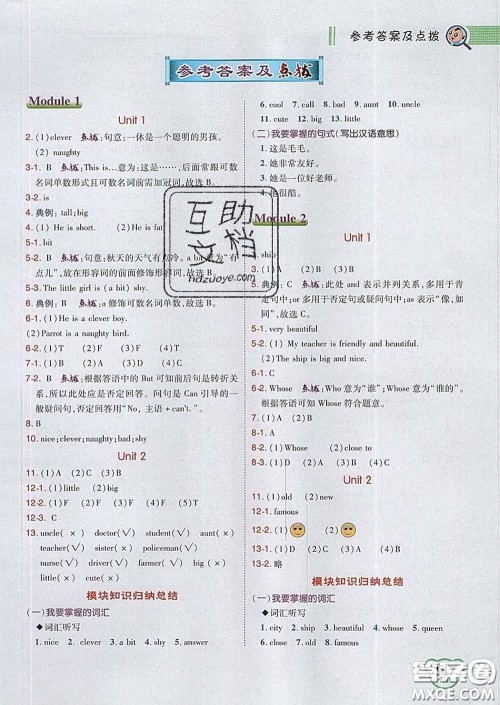 参考答案及点拨
参考答案及点拨
Module 1
Unit 1
2. (1) clever 点拨:句意:一休是一个聪明的男孩。
(2) naughty
3-1. B 点拨: This is…意为:这是……,后面常跟可数
名词单数形式且可数名词前需加冠词,故选 B。
3-2. is
4. 典例: tall; big
4-1. (1) He is short.
5-1. bit
5-2. B
5-3. The little girl is (a bit) shy.
6. 典例: B 点拨: a 修饰可数名词单数,故选 B。
6-1. (1) He is a clever boy.
(2) Parrot is a naughty bird.
6-2. (1) T (2) F (3) T (4) T
7-2. B 点拨:根据答语中的 But 可知前后句是转折关
系,所以此处应是否定回答。问句是 Can 引导的一
般疑问句,否定回答用“No, 主语 + can't.”。
8. B
10. nice; clever; naughty; bad; shy
Unit 2
11. (1) A (2) C (3) B
12-1. (1) little (2) big
12-2. (1) T (2) F (3) F (4) F (5) T
12-3. C
13. uncle (×) doctor (√) student (√) aunt (×)
teacher (√) sister (×) policeman (√)
nurse (√) driver (√) father (×)
mother (×) brother (×) farmer (√)
模块知识归纳总结
(一)我要掌握的词汇
◆词汇听写
1. nice 2. clever 3. a bit 4. shy 5. answer
6. cool 7. call 8. bad 9. aunt 10. uncle
11. cute 12. big 13. little
(二)我要掌握的句式(写出汉语意思)
1. 这是毛毛。
2. 她非常友好。
3. 她是一位好老师。
4. 他很酷。
Module 2
Unit 1
1. ship
5. 典例: C 点拨:此处 and 表示并列关系,多用于肯
定句中; or 多用于否定句或疑问句中; as 表示“像,如
同”。故选 C。
5-1. very beautiful
5-2. (1) My teacher is friendly and beautiful.
6-1. C
6-2. Whose 点拨: Who 意为“谁”; Whose 意为“谁的”。
根据答语可知 Whose 符合题意。
7. (1) A (2) B (3) C
8-1. B 8-2. (1) Whose (2) close to
8-3. (1) C (2) B (3) A
Unit 2
11. (1) old (2) new
12-1. famous
12-2. (1) (2)
13-1. (1) A (2) A (3) B (4) C
13-2. 略
模块知识归纳总结
(一)我要掌握的词汇
◆词汇听写
1. city 2. ship 3. whose 4. whose 5. queen
6. close 7. old 8. famous
互助
文档
hdzuoye.com
答案圈
MXQE.COM